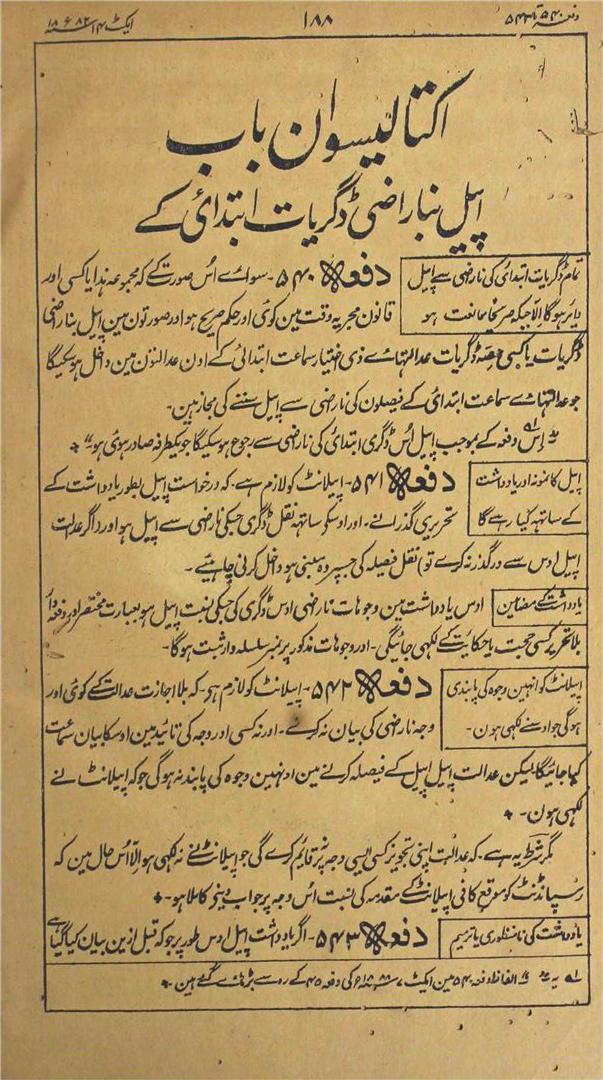 دفعہ ۵۴۰ تا ۵۴۳
۱۸۸
ایکٹ ۱۴ ۱۸۸۲ء
اکتالیسوان باب
اپیل بناراضی ڈگریات ابتدائی کے
تمام ڈگریات ابتدائی کی ناراضی سے اپیل
دایر ہوگا اِلّا جبکہ صریحًا ممانعت ہو
دفعہ ۵۴۰ - سواے اُس صورت کے کہ مجموعہ ہذا یا کسی اور
قانون مجریہ وقت مین کوئی اور حکم صریح ہو اور صورتون مین اپیل بناراضی
ڈگریات یا کسی حصہ ڈگریات عدالتہاے ذی اختیار سماعت ابتدائی کے اون عدالتون مین داخل ہوسکیگا
جو عدالتہاے سماعت ابتدائی کے فیصلون کی ناراضی سے اپیل سننے کی مجاز ہین -
اِس دفعہ کے بموجب اپیل اُس ڈگری ابتدائی کی ناراضی سے رجوع ہوسکیگا جو یکطرفہ صادر ہوئی ہو
اپیل کا نمونہ اور یادداشت
کے ساتہہ کیا رہے گا
دفعہ ۵۴۱ - اپیلانٹ کو لازم ہے کہ درخواست اپیل بطور یادداشت کے
تحریری گذرانے - اور اوسکے ساتہہ نقل ڈگری جسکی ناراضی سے اپیل ہو اور (اگر عدالت
اپیل اوس سے درگذر نہ کرے تو) نقل فیصلہ کی جسپر وہ مبنی ہو داخل کرنی چاہئیے -
یادداشت کے مضامین
اوس یادداشت مین وجوہات ناراضی اوس ڈگری کی جسکی نسبت اپیل ہو بعبارت مختصر اور دفعہ وار
بلا تحریر کسی حجت یا حکایت کے لکہی جائینگی - اور وجوہات مذکور پر نمبر سلسلہ وار ثبت ہوگا -
اپیلانٹ کو انہین وجوہ کی پابندی
ہوگی جو اوسنے لکہی ہون -
دفعہ ۵۴۲ - اپیلانٹ کو لازم ہی - کہ بلا اجازت عدالت کے کوئی اور
وجہ ناراضی کی بیان نہ کرے - اور نہ کسی اور وجہ کی تائید مین اوسکا بیان سماعت
کیا جائیگا لیکن عدالت اپیل اپیل کے فیصلہ کرنے مین اونہین وجوہ کی پابند نہ ہوگی جو کہ اپیلانٹ نے
لکہی ہون -
مگر شرط یہ ہے - کہ عدالت اپنی تجویز کسی ایسی وجہ پر نہ قایم کرے گی جو اپیلانٹ نے نہ لکہی ہو اِلّا اُس حال مین کہ
رسپانڈنٹ کو موقع کافی اپیلانٹ کے مقدمہ کی نسبت اُس وجہ پر جواب دینے کا ملا ہو -
یادداشت کی نامنظوری یا ترمیم
دفعہ ۵۴۳ - اگر یادداشت اپیل اوس طور پر جو کہ قبل ازین بیان کیا گیا ہے
یہ الفاظ دفعہ ۵۴۰ مین ایکٹ ۷ ۱۸۸۸ء کی دفعہ ۴۵ کے رو سے بڑہائے گئے ہین